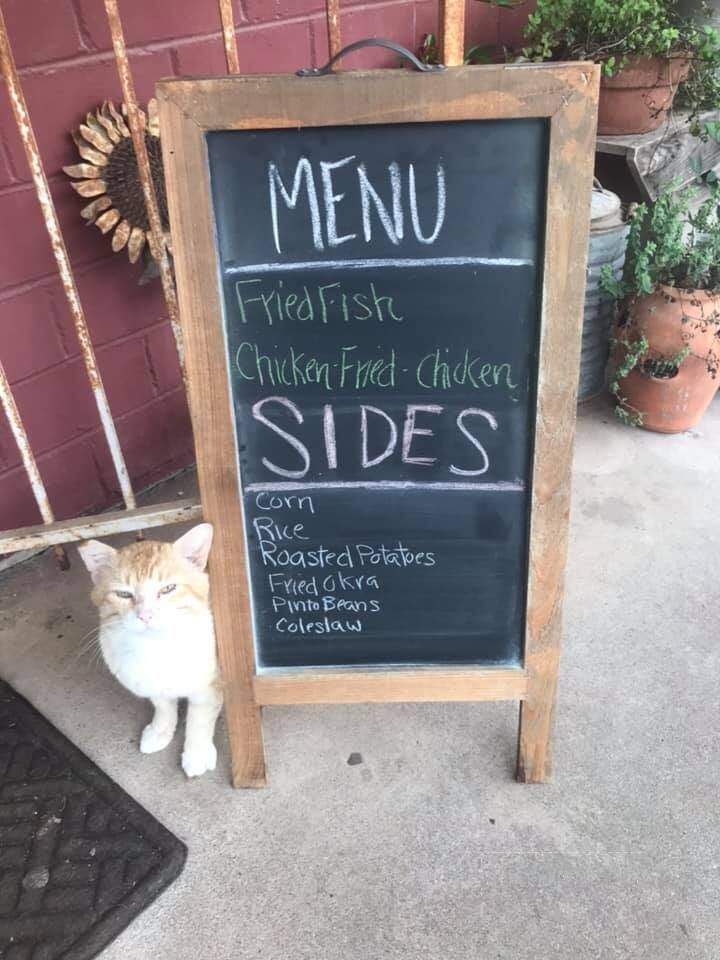 MENU
Fried Fish
Chicken-Fried-Chicken
SIDES
Corn
Rice
Roasted Potatoes
Fried Okra
Pinto Beans
Coleslaw